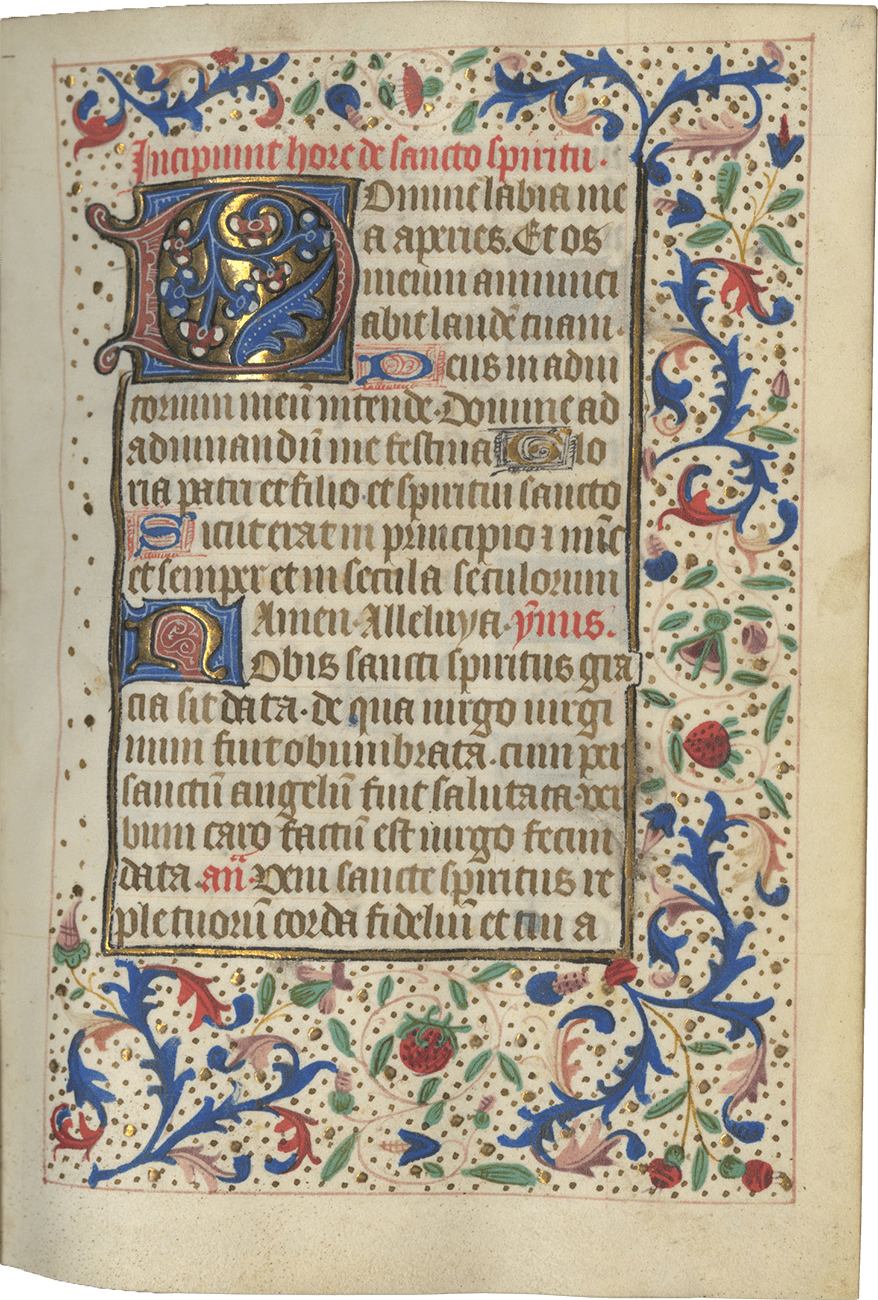 14
Incipiunt hore de sancto spiritu.
Domine labia me
a aperies. Et os
meum annunci
abit laudē tuam.
Deus in adiu
torium meū intende. Domine ad
adiuuandū me festina Glo
ria patri et filio. et spiritui sancto
Sicut erat in principio ⁊ nūc
et semper et in secula seculorum
Amen. Alleluya. ȳnus.
Nobis sancti spiritus gra
cia sit data. de qua uirgo uirgi
num fuit obumbrata. cum per
sanctū angelū fuit salutata. ver
bum caro factū est uirgo fecun
data. an̄. Veni sancte spiritus re
ple tuorū corda fideliū et tui a